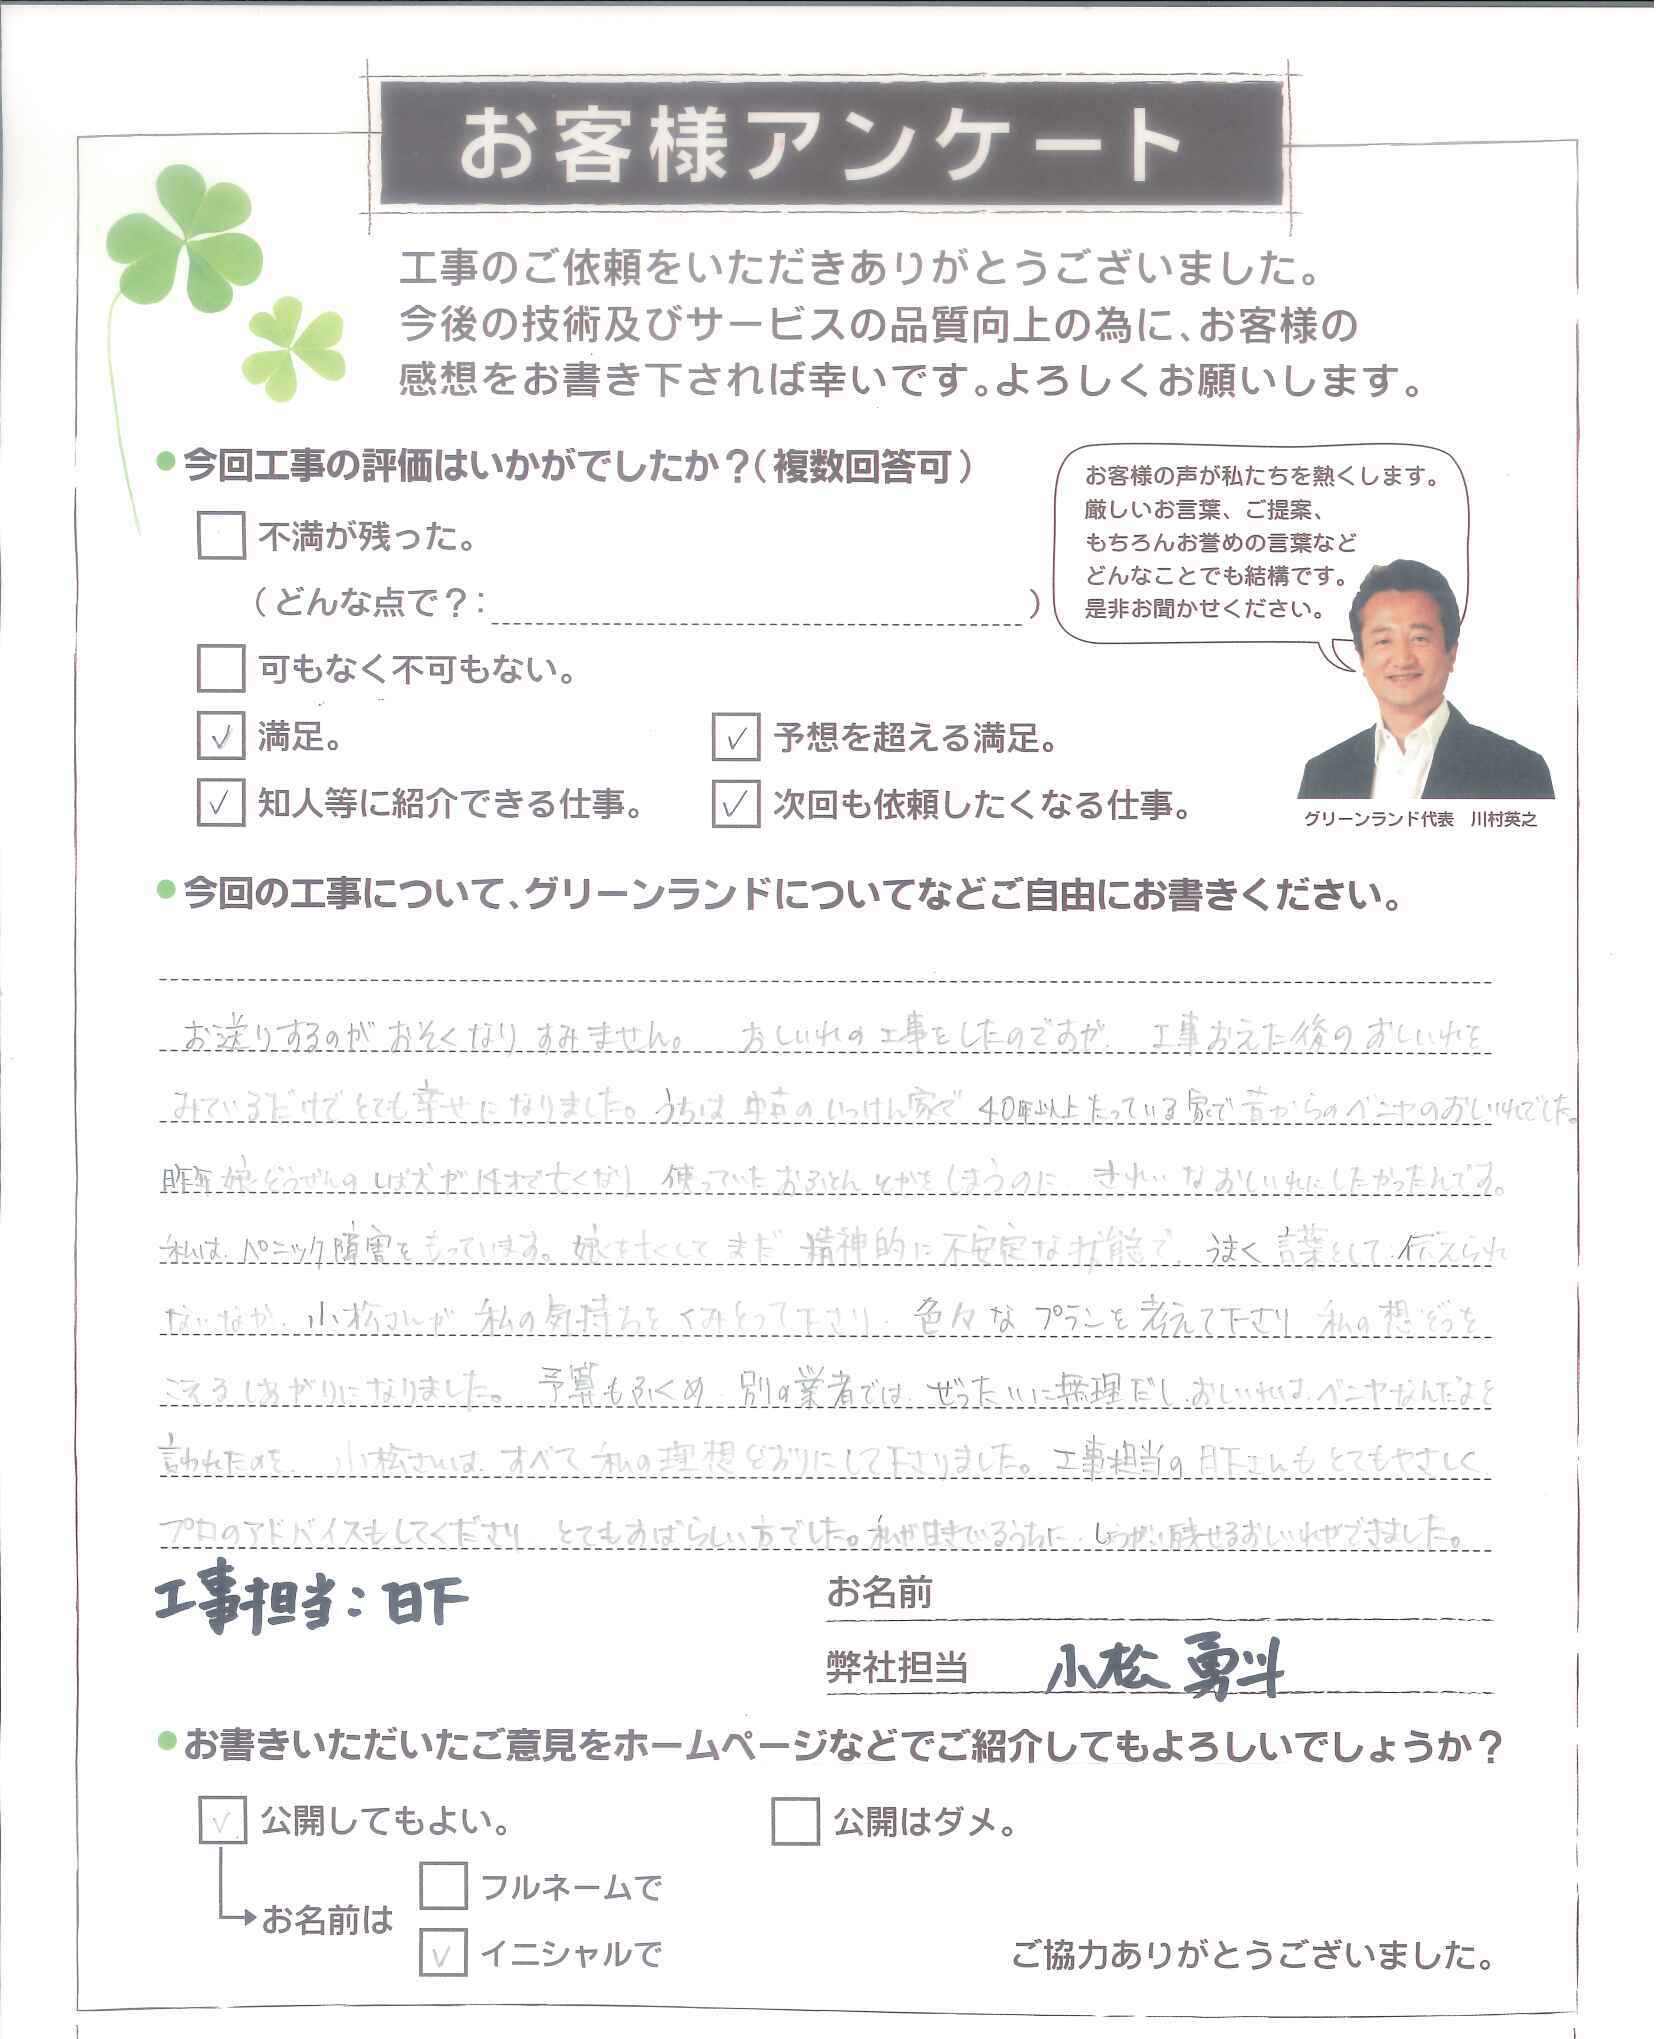 お客様アンケート
工事のご依頼をいただきありがとうございました。
今後の技術及びサービスの品質向上の為に、お客様の
感想をお書き下されば幸いです。よろしくお願いします。
今回工事の評価はいかがでしたか？（複数回答可）
不満が残った。
（どんな点で？：　）
可もなく不可もない。
✓ 満足。　✓ 予想を超える満足。
✓ 知人等に紹介できる仕事。　✓ 次回も依頼したくなる仕事。
お客様の声が私たちを熱くします。
厳しいお言葉、ご提案、
もちろんお誉めの言葉など
どんなことでも結構です。
是非お聞かせください。
グリーンランド代表　川村英之
今回の工事について、グリーンランドについてなどご自由にお書きください。
お送りするのがおそくなりすみません。　おしいれの工事をしたのですが、工事おえた後のおしいれを
みているだけでとても幸せになりました。うちは中古のいっけん家で40年以上たっている家で昔からのベニヤのおしいれでした。
昨年娘どうぜんのしば犬が14才で亡くなり　使っていたおふとんとかをしまうのに、きれいなおしいれにしたかったんです。
私は、パニック障害をもっています。娘を亡くしてまだ精神的に不安定な状態で、うまく言葉として伝えられ
ないなか、小松さんが私の気持ちをくみとって下さり、色々なプランを考えて下さり　私の想ぞうを
こえるしあがりになりました。　予算もふくめ、別の業者では、ぜったいに無理だし、おしいれは、ベニヤなんだよと
言われたのを、　小松さんは、すべて私の理想どおりにして下さりました。工事担当の日下さんもとてもやさしく
プロのアドバイスもしてくださり　とてもすばらしい方でした。私が生きているうちに、しょうがい残せるおしいれができました。
工事担当：日下
お名前
弊社担当　小松 勇斗
お書きいただいたご意見をホームページなどでご紹介してもよろしいでしょうか？
✓ 公開してもよい。　公開はダメ。
お名前は
フルネームで
✓ イニシャルで
ご協力ありがとうございました。